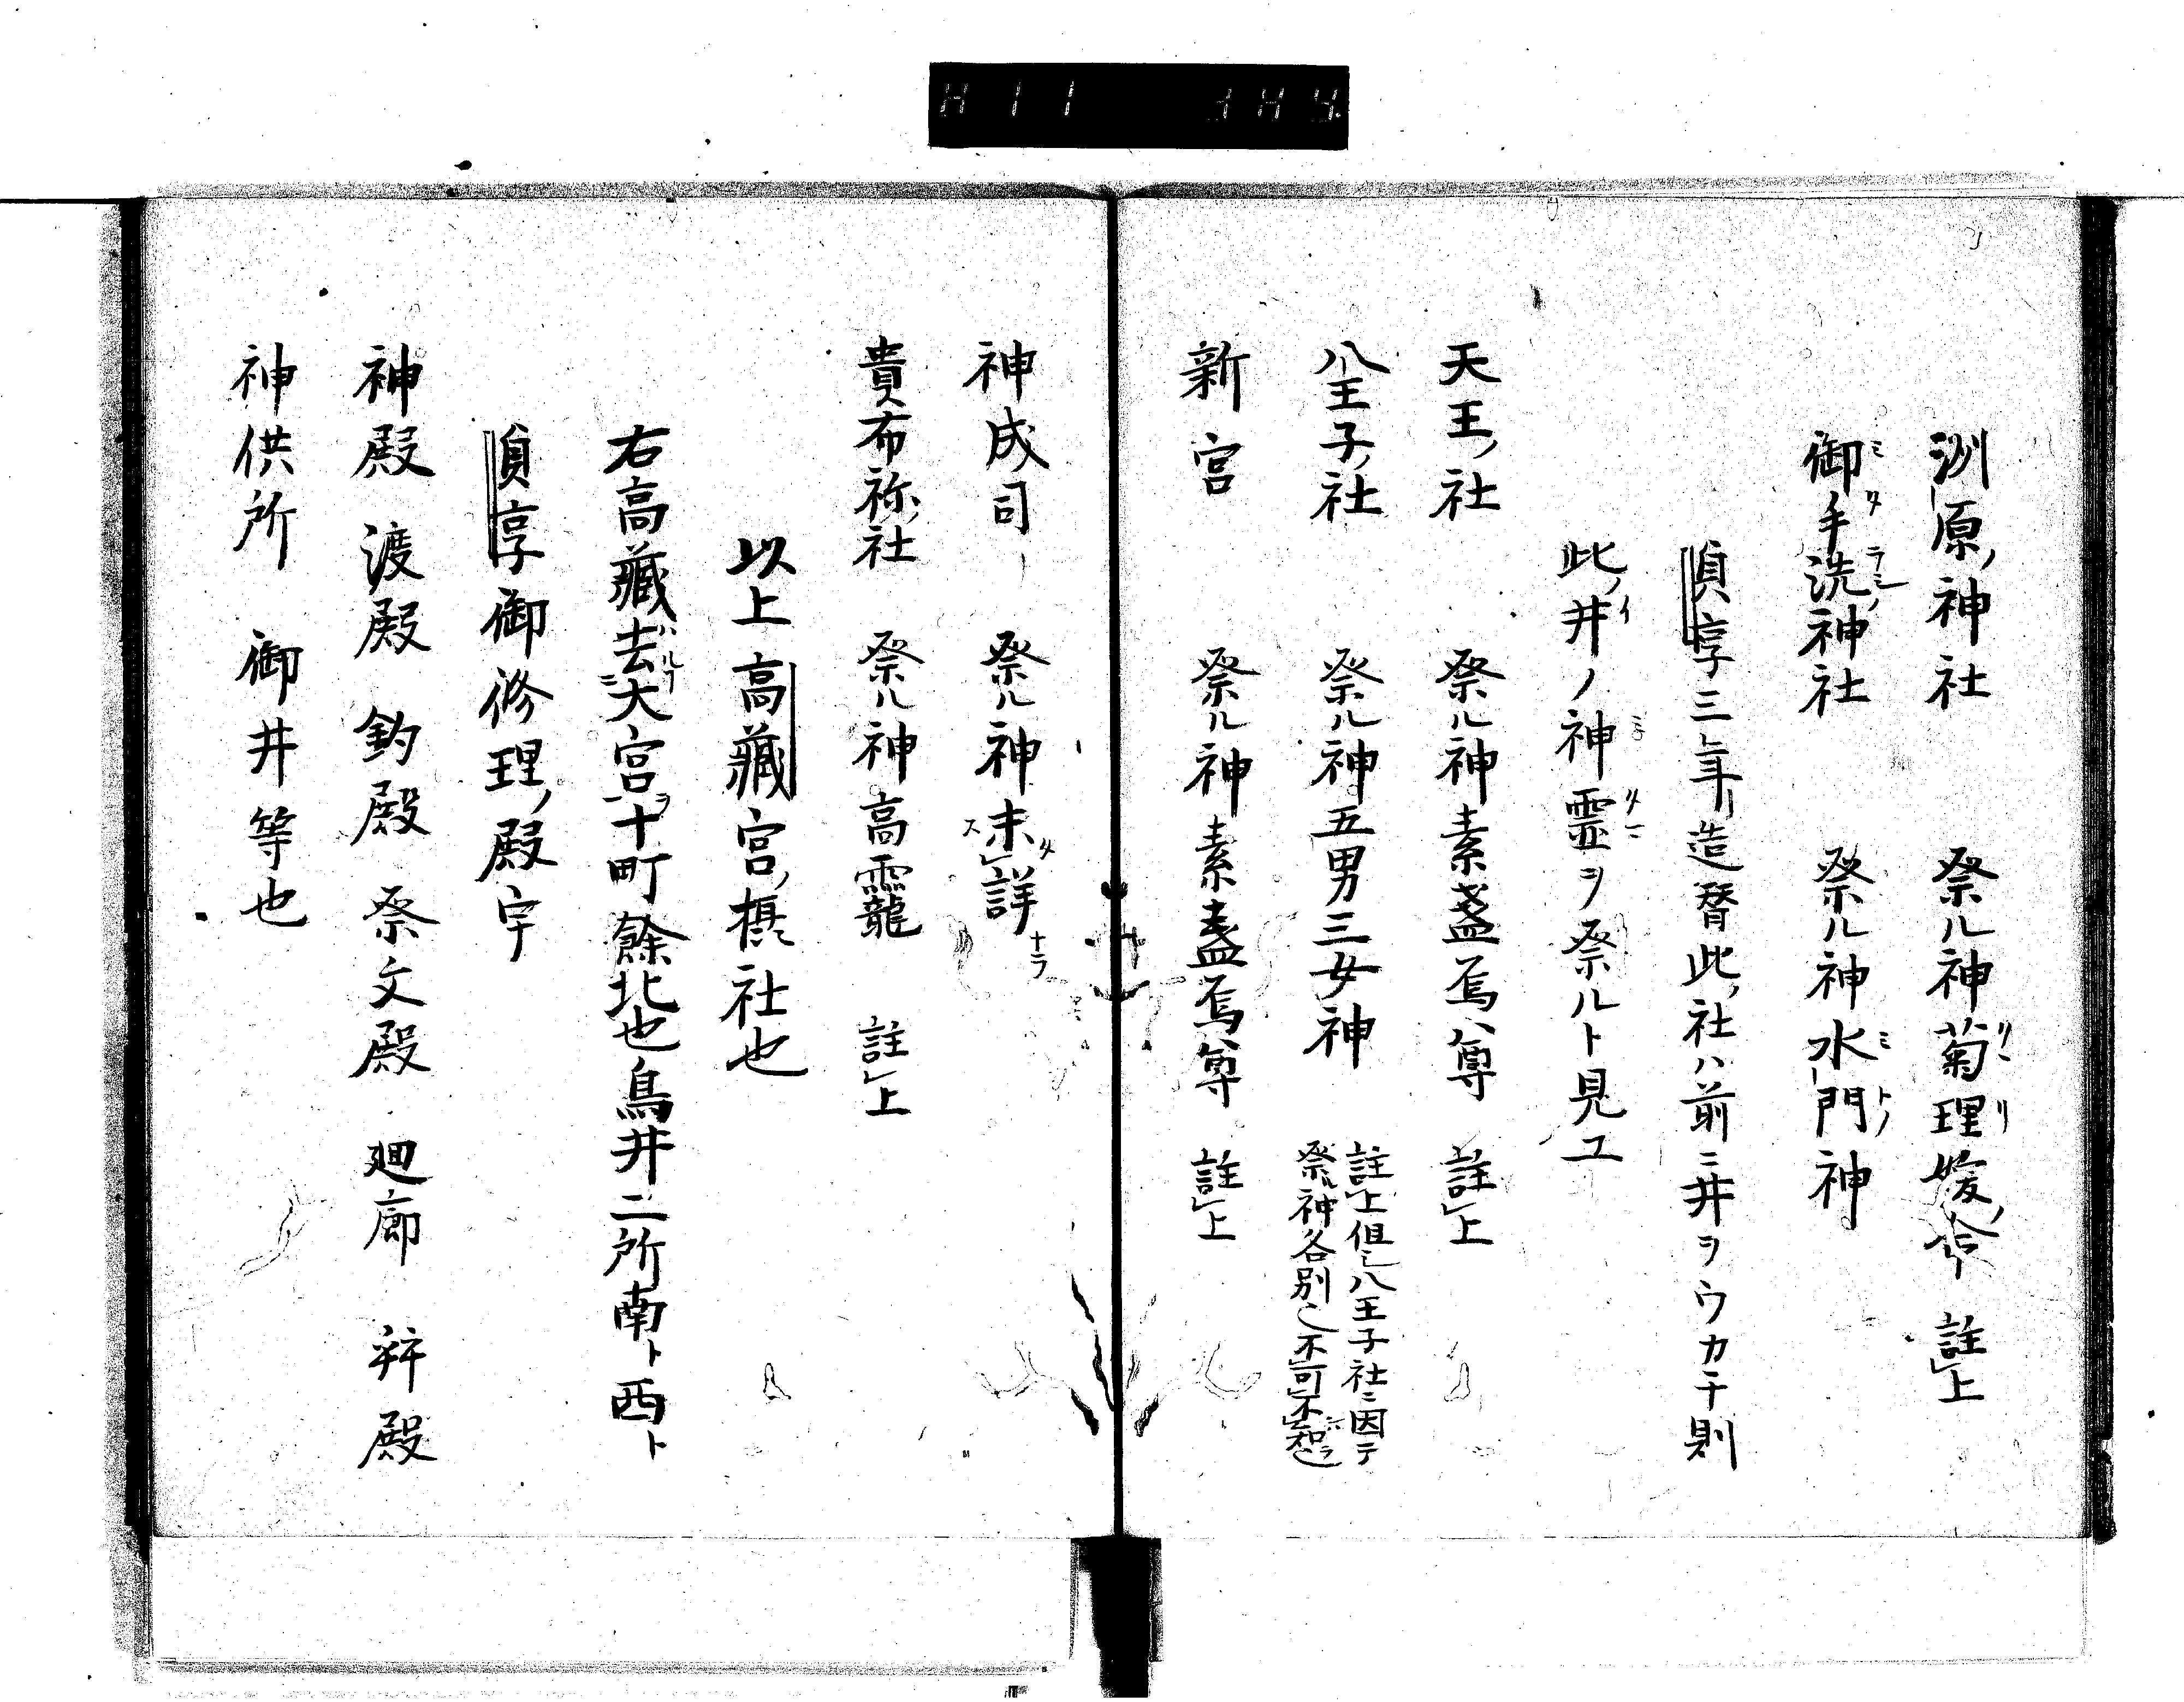 洲原神社　祭ル神菊理媛命　註上
御手洗神社　祭ル神水門神
貞享三年造替此社ハ前ニ井ヲウカチ則
此井ノ神霊ヲ祭ルト見エ
天王社　祭ル神素盞烏尊　註上
八王子社　祭ル神五男三女神　註上但シ八王子社ニ因テ
祭ル神各別也不可不知也
新宮　祭ル神素盞烏尊　註上
神成司　祭ル神未詳
貴布祢社　祭ル神高龗　註上
以上高藏宮摂社也
右高藏去大宮十町餘北也鳥井二所南ト西ト
貞享御修理ノ殿宇
神殿　渡殿　釣殿　祭文殿　廻廊　拜殿
神供所　御井等也